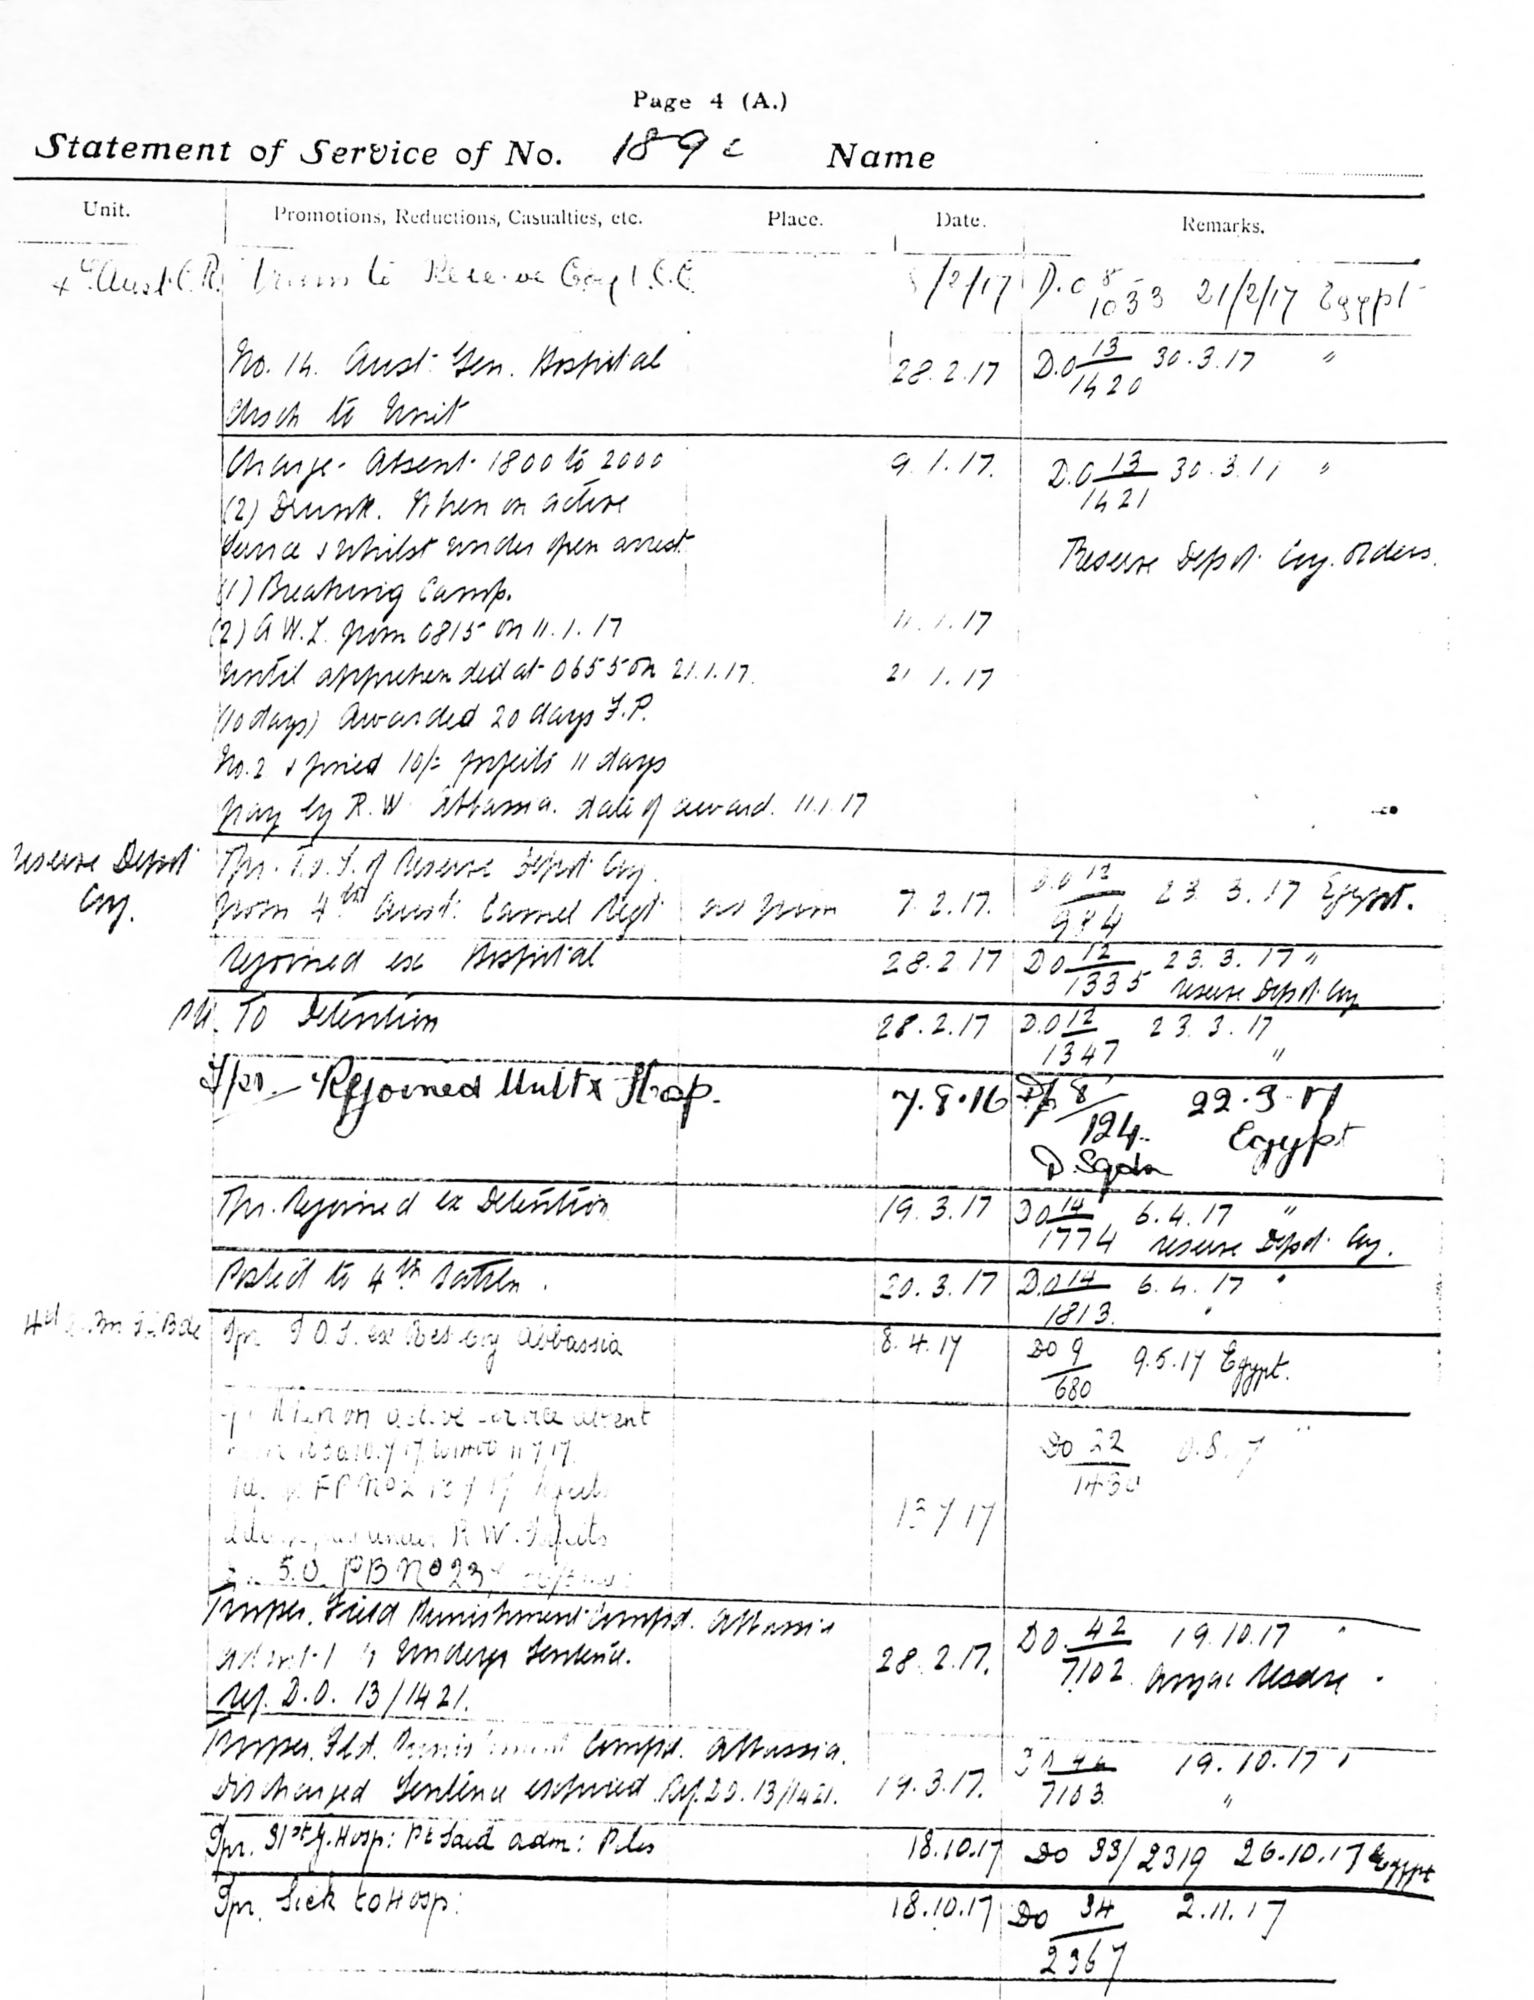 Page 4 (A.)
Statement of Service of No. 189 Name
Unit. Promotions, Reductions, Casualties, etc. Place. Date. Remarks.
Aust. C.R. Trans to Reserve Coy I.C.C. /2/17 D.O 8/1033 21/2/17 Egypt
No. 14. Aust. Gen. Hospital 28.2.17 D.O 13/1420 30.3.17 "
disch to Unit
Charge - Absent 1800 to 2000 9.1.17. D.O 13/1421 30.3.17 "
(2) Drunk. When on active
Service & whilst under open arrest Reserve Depot Coy. Orders.
(1) Breaking Camp.
(2) A.W.L. from 0815 on 11.1.17 11.1.17
until apprehended at 0655 on 21.1.17. 21.1.17
(10 days) Awarded 20 days F.P.
No. 2 & fined 10/= forfeits 11 days
pay by R.W. Abbassia. date of award. 11.1.17
Reserve Depot Tpr. T.O.S. of Reserve Depot Coy.
Coy. from 4th Aust. Camel Regt as from 7.2.17. D.O 12/984 23.3.17 Egypt.
Rejoined ex Hospital 28.2.17 DO 12/1335 23.3.17 "
Reserve Depot Coy
To Detention 28.2.17 D.O 12/1347 23.3.17
"
Tpr. Rejoined Unit x Hosp. 7.8.16 8/124 22.3.17
Egypt
D Sqdn
Tpr. Rejoined ex Detention 19.3.17 DO 14/1774 6.4.17 "
Reserve Depot Coy.
Posted to 4th Battln. 20.3.17 D.O 14/1813. 6.4.17 "
"
Bde Tpr T.O.S. ex Res Coy Abbassia 8.4.17 DO 9/680 9.5.17 Egypt.
When on active service absent
DO 22/1430 "
FP No 2
13/7/17
R W. Forfeits
PB No 23
Trooper. Field Punishment Compd. Abbassia
admitted to Undergo Sentence. 28.2.17. DO. 42/7102 19.10.17 "
Anzac Reserve
Ref. D.O. 13/1421.
Trooper. Fld. Punishment Compd. Abbassia. 19.10.17 "
Discharged Sentence expired Ref. D.O. 13/1421. 19.3.17. 7103 "
Tpr. 31st G. Hosp: Pt Said adm: Piles 18.10.17 DO 33/2319 26.10.17 Egypt
Tpr. Sick to Hosp: 18.10.17 DO 34/2367 2.11.17